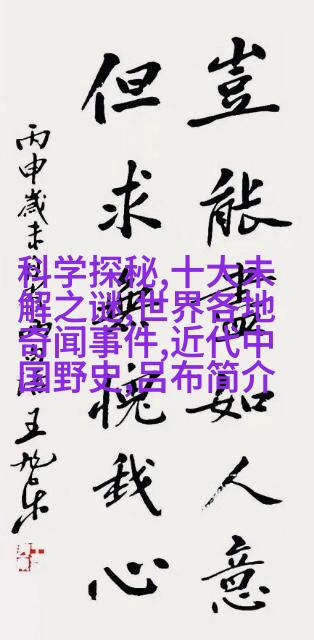 豈能盡如人意
但求無愧我心
丙申歲末
王旭东
科学探秘,十大未
解之谜,世界各地
奇闻事件,近代中
国野史,吕布简介